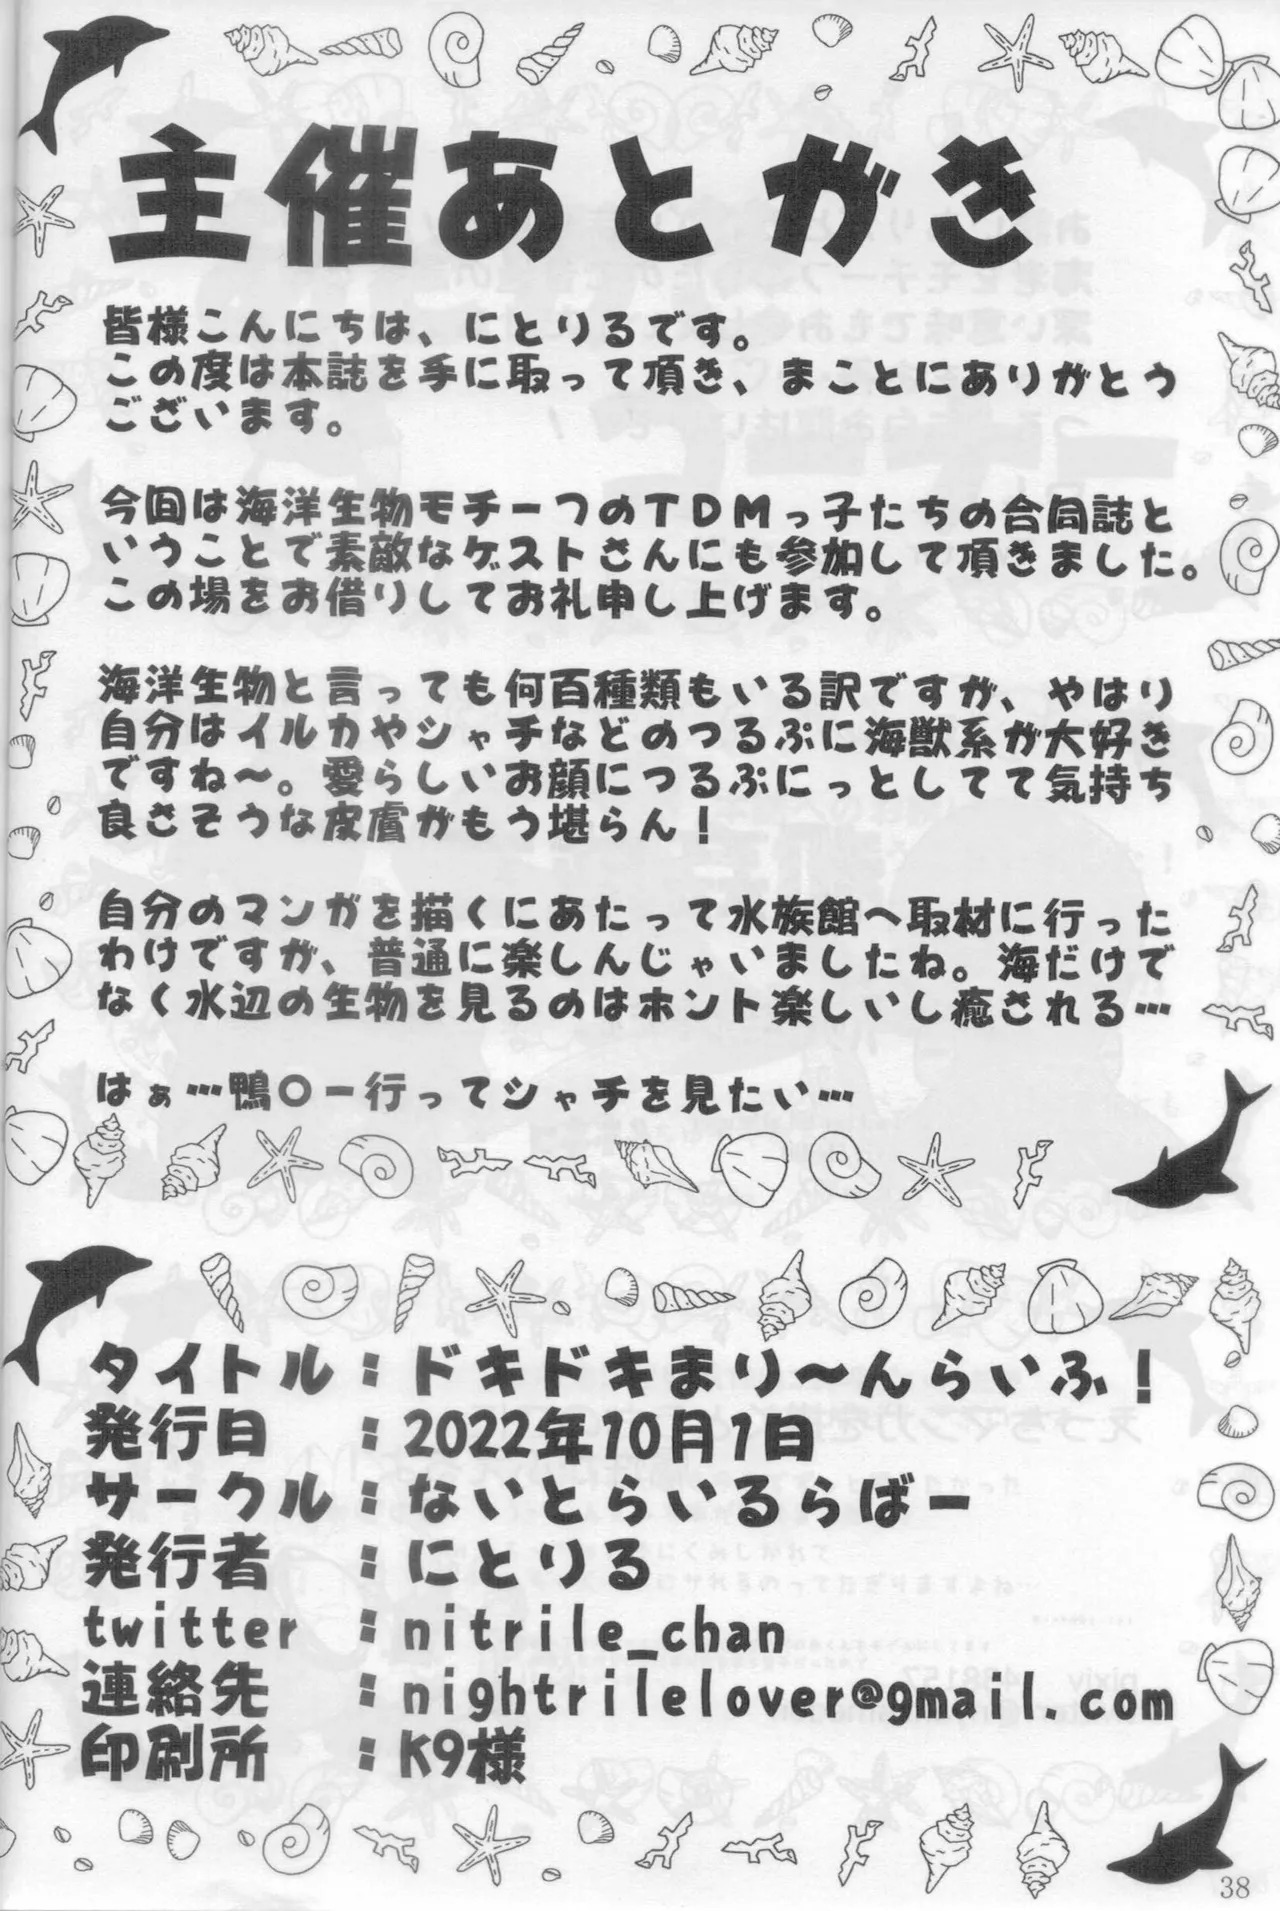 主催あとがき
皆様こんにちは、にとりるです。
この度は本誌を手に取って頂き、まことにありがとう
ございます。
今回は海洋生物モチーフのTDMっ子たちの合同誌と
いうことで素敵なゲストさんにも参加して頂きました。
この場をお借りしてお礼申し上げます。
海洋生物と言っても何百種類もいる訳ですが、やはり
自分はイルカやシャチなどのつるぷに海獣系が大好き
ですね～。愛らしいお顔につるぷにっとしてて気持ち
良さそうな皮膚がもう堪らん！
自分のマンガを描くにあたって水族館へ取材に行った
わけですが、普通に楽しんじゃいましたね。海だけで
なく水辺の生物を見るのはホント楽しいし癒される…
はぁ…鴨〇ー行ってシャチを見たい…
タイトル：ドキドキまり～んらいふ！
発行日：2022年10月1日
サークル：ないとらいるらばー
発行者：にとりる
twitter：nitrile_chan
連絡先：nightrilelover@gmail.com
印刷所：K9様
38